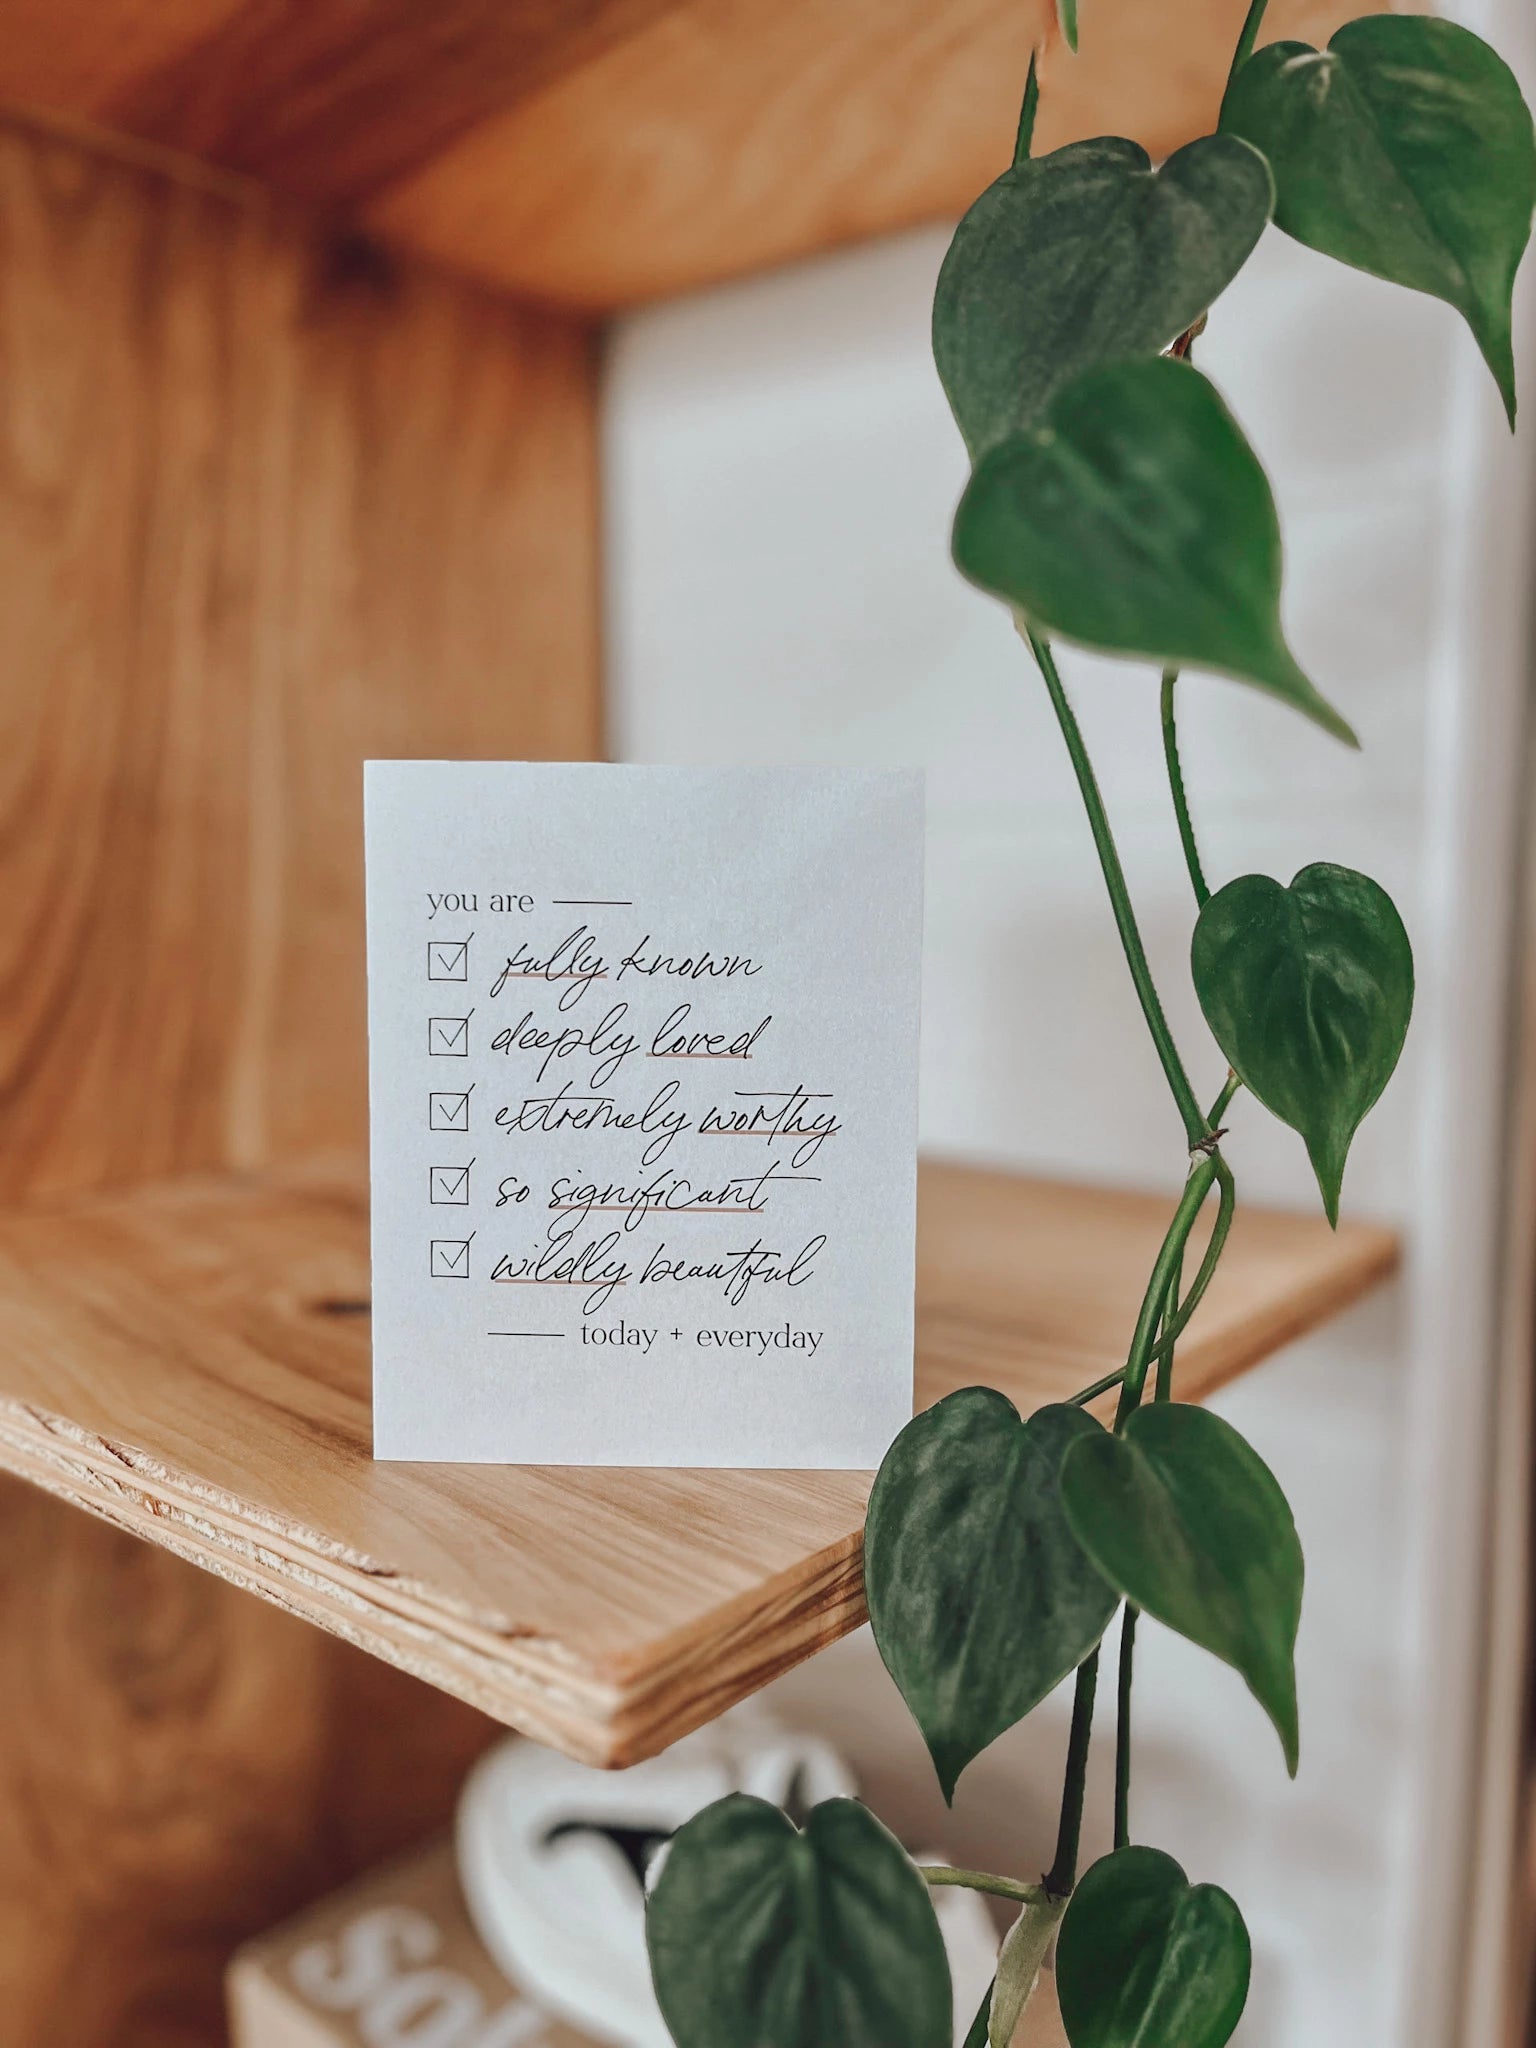 you are
fully known
deeply loved
extremely worthy
so significant
wildly beautiful
today + everyday